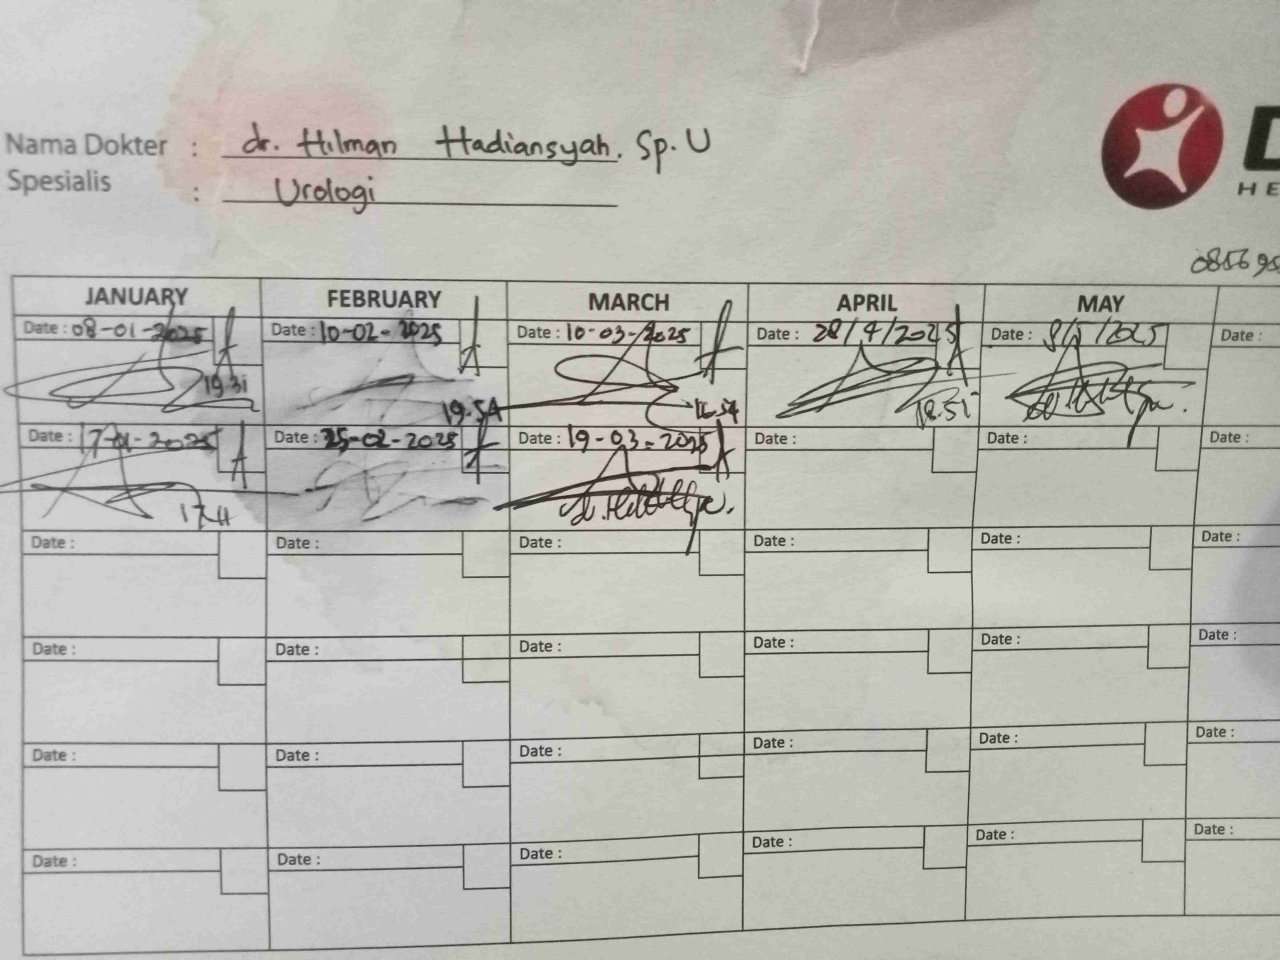 Nama Dokter : dr. Hilman Hadiansyah. Sp. U
Spesialis : Urologi
HE
085695
JANUARY FEBRUARY MARCH APRIL MAY
Date : 08-01-2025 Date : 10-02-2025 Date : 10-03-2025 Date : 28/4/2025 Date : 8/5/2025 Date :
19.31 19.54 16.54 18.51
Date : 17-01-2025 Date : 25-02-2025 Date : 19-03-2025 Date : Date : Date :
17.11
Date : Date : Date : Date : Date : Date :
Date : Date : Date : Date : Date : Date :
Date : Date : Date : Date : Date : Date :
Date : Date : Date : Date : Date : Date :